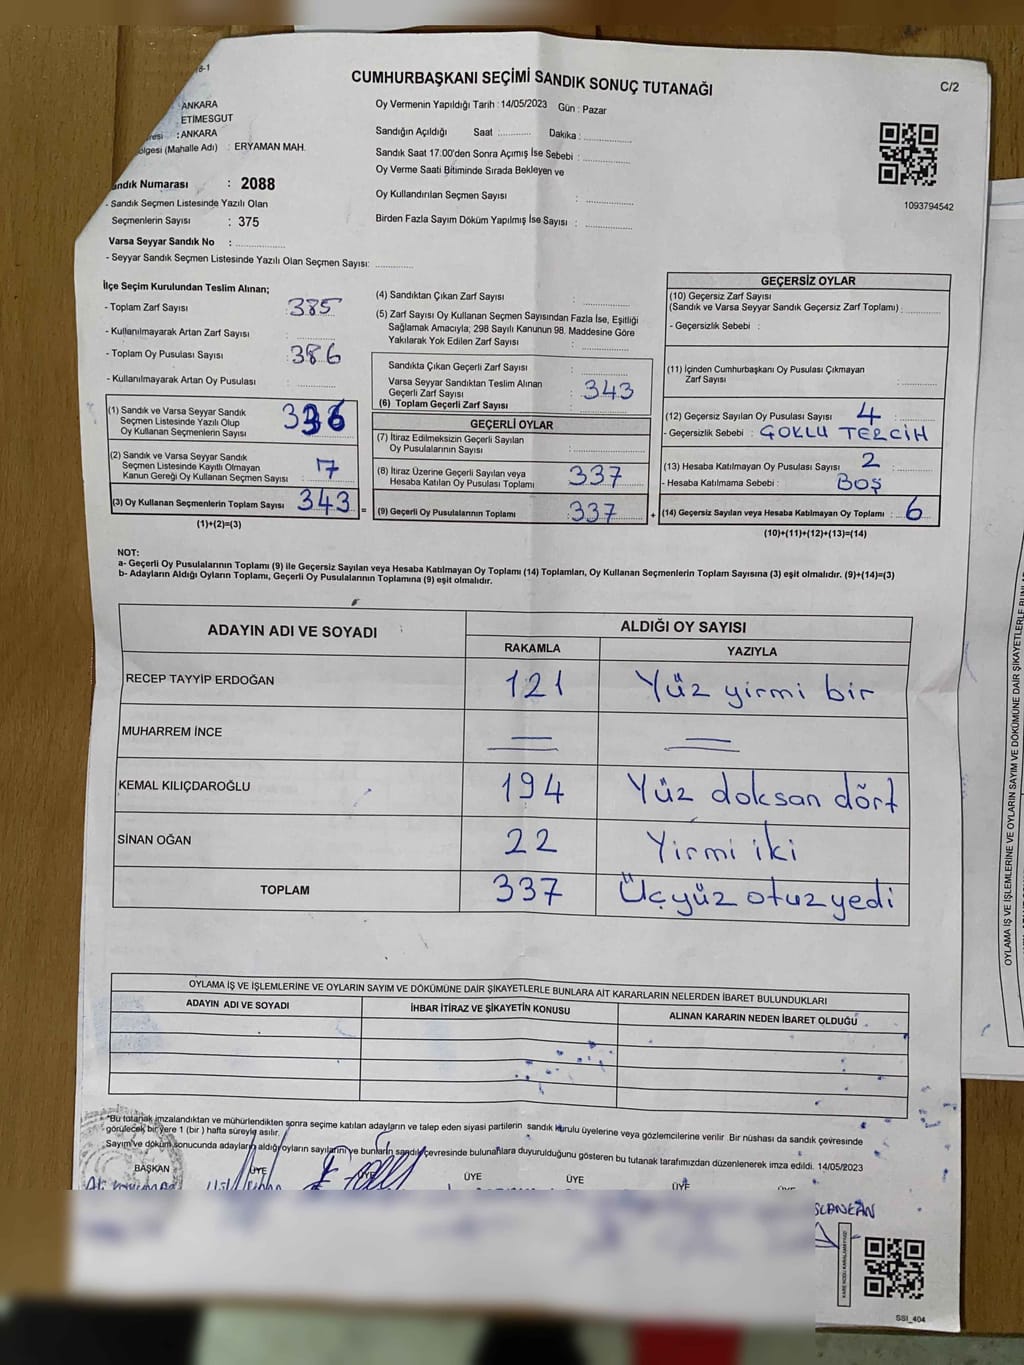 CUMHURBAŞKANI SEÇİMİ SANDIK SONUÇ TUTANAĞI
C/2
ANKARA
ETİMESGUT
: ANKARA
(Mahalle Adı) : ERYAMAN MAH.
Numarası : 2088
- Sandık Seçmen Listesinde Yazılı Olan
Seçmenlerin Sayısı : 375
Varsa Seyyar Sandık No :
- Seyyar Sandık Seçmen Listesinde Yazılı Olan Seçmen Sayısı:
Oy Vermenin Yapıldığı Tarih : 14/05/2023 Gün : Pazar
Sandığın Açıldığı Saat : Dakika :
Sandık Saat 17.00'den Sonra Açımış İse Sebebi :
Oy Verme Saati Bitiminde Sırada Bekleyen ve
Oy Kullandırılan Seçmen Sayısı :
Birden Fazla Sayım Döküm Yapılmış İse Sayısı :
1093794542
İlçe Seçim Kurulundan Teslim Alınan;
- Toplam Zarf Sayısı : 385
- Kullanılmayarak Artan Zarf Sayısı :
- Toplam Oy Pusulası Sayısı : 386
- Kullanılmayarak Artan Oy Pusulası :
(1) Sandık ve Varsa Seyyar Sandık
Seçmen Listesinde Yazılı Olup
Oy Kullanan Seçmenlerin Sayısı : 336
(2) Sandık ve Varsa Seyyar Sandık
Seçmen Listesinde Kayıtlı Olmayan
Kanun Gereği Oy Kullanan Seçmen Sayısı : 7
(3) Oy Kullanan Seçmenlerin Toplam Sayısı : 343
(1)+(2)=(3)
=
(4) Sandıktan Çıkan Zarf Sayısı :
(5) Zarf Sayısı Oy Kullanan Seçmen Sayısından Fazla İse, Eşitliği
Sağlamak Amacıyla; 298 Sayılı Kanunun 98. Maddesine Göre
Yakılarak Yok Edilen Zarf Sayısı :
Sandıkta Çıkan Geçerli Zarf Sayısı :
Varsa Seyyar Sandıktan Teslim Alınan
Geçerli Zarf Sayısı :
(6) Toplam Geçerli Zarf Sayısı : 343
GEÇERLİ OYLAR
(7) İtiraz Edilmeksizin Geçerli Sayılan
Oy Pusulalarının Sayısı :
(8) İtiraz Üzerine Geçerli Sayılan veya
Hesaba Katılan Oy Pusulası Toplamı : 337
(9) Geçerli Oy Pusulalarının Toplamı : 337
+
GEÇERSİZ OYLAR
(10) Geçersiz Zarf Sayısı
(Sandık ve Varsa Seyyar Sandık Geçersiz Zarf Toplamı) :
- Geçersizlik Sebebi :
(11) İçinden Cumhurbaşkanı Oy Pusulası Çıkmayan
Zarf Sayısı :
(12) Geçersiz Sayılan Oy Pusulası Sayısı : 4
- Geçersizlik Sebebi : ÇOKLU TERCİH
(13) Hesaba Katılmayan Oy Pusulası Sayısı : 2
- Hesaba Katılmama Sebebi : BOŞ
(14) Geçersiz Sayılan veya Hesaba Katılmayan Oy Toplamı : 6
(10)+(11)+(12)+(13)=(14)
NOT:
a- Geçerli Oy Pusulalarının Toplamı (9) ile Geçersiz Sayılan veya Hesaba Katılmayan Oy Toplamı (14) Toplamları, Oy Kullanan Seçmenlerin Toplam Sayısına (3) eşit olmalıdır. (9)+(14)=(3)
b- Adayların Aldığı Oyların Toplamı, Geçerli Oy Pusulalarının Toplamına (9) eşit olmalıdır.
ADAYIN ADI VE SOYADI
ALDIĞI OY SAYISI
RAKAMLA YAZIYLA
RECEP TAYYİP ERDOĞAN 121 Yüz yirmi bir
MUHARREM İNCE
KEMAL KILIÇDAROĞLU 194 Yüz doksan dört
SİNAN OĞAN 22 Yirmi iki
TOPLAM 337 Üçyüz otuz yedi
OYLAMA İŞ VE İŞLEMLERİNE VE OYLARIN SAYIM VE DÖKÜMÜNE DAİR ŞİKAYETLERLE BUNLARA AİT KARARLARIN NELERDEN İBARET BULUNDUKLARI
ADAYIN ADI VE SOYADI İHBAR İTİRAZ VE ŞİKAYETİN KONUSU ALINAN KARARIN NEDEN İBARET OLDUĞU
*Bu tutanak imzalandıktan ve mühürlendikten sonra seçime katılan adayların ve talep eden siyasi partilerin sandık kurulu üyelerine veya gözlemcilerine verilir Bir nüshası da sandık çevresinde
görülecek bir yere 1 (bir ) hafta süreyle asılır.
Sayım ve döküm sonucunda adayların aldığı oyların sayılarını ve bunların sandık çevresinde bulunanlara duyurulduğunu gösteren bu tutanak tarafımızdan düzenlenerek imza edildi. 14/05/2023
BAŞKAN ÜYE ÜYE ÜYE ÜYE ÜYE
SSI_404
OYLAMA İŞ VE İŞLEMLERİNE VE OYLARIN SAYIM VE DÖKÜMÜNE DAİR ŞİKAYETLERLE